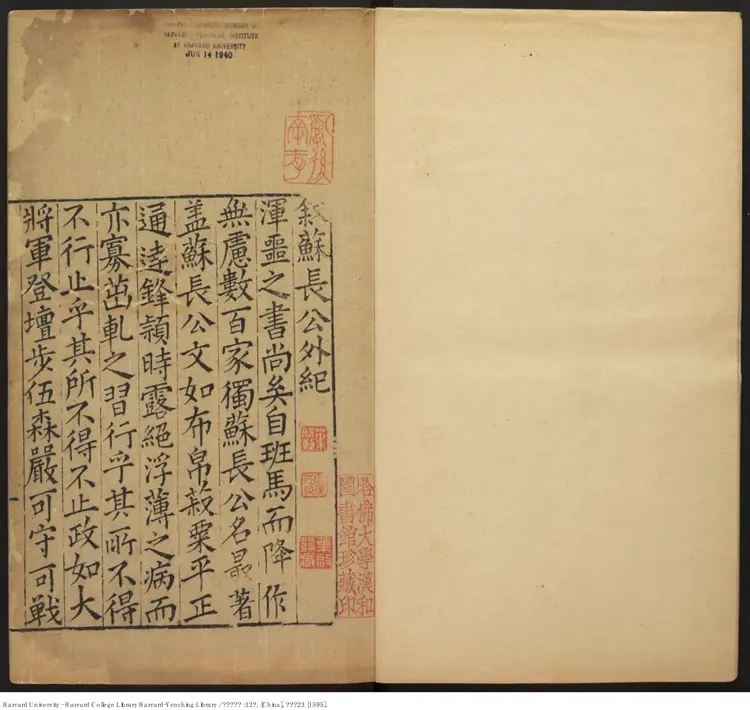 HARVARD-YENCHING INSTITUTE
AT HARVARD UNIVERSITY
JUN 14 1940
敘蘇長公外紀
渾噩之書尚矣自班馬而降作
無慮數百家獨蘇長公名最著
盖蘇長公文如布帛菽粟平正
通逹鋒頴時露絕浮薄之病而
亦寡茁軋之習行乎其所不得
不行止乎其所不得不止政如大
將軍登壇步伍森嚴可守可戦
哈佛大學漢和
圖書館珍藏印
Harvard University - Harvard College Library Harvard-Yenching Library / ????? :12?. [China], ???23 [1595].